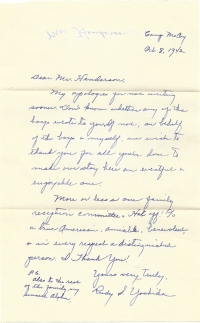 Camp McCoy
Oct. 8, 1942
Dear Mr. Henderson:
My apologies for not writing
sooner. Don't know whether any of the
boys wrote to you. If not, on behalf
of the boys & myself, we wish to
thank you for all you've done to
make our stay here an eventful &
enjoyable one.
More or less as one family
reception committee. Hat off! To
a true American, amiable, benevolent,
& in every respect a distinguished
person. I Thank You!
Yours very truly,
P.S.
Also to the rest
of the family, my
Aloha.
Rudy S. Yoshida